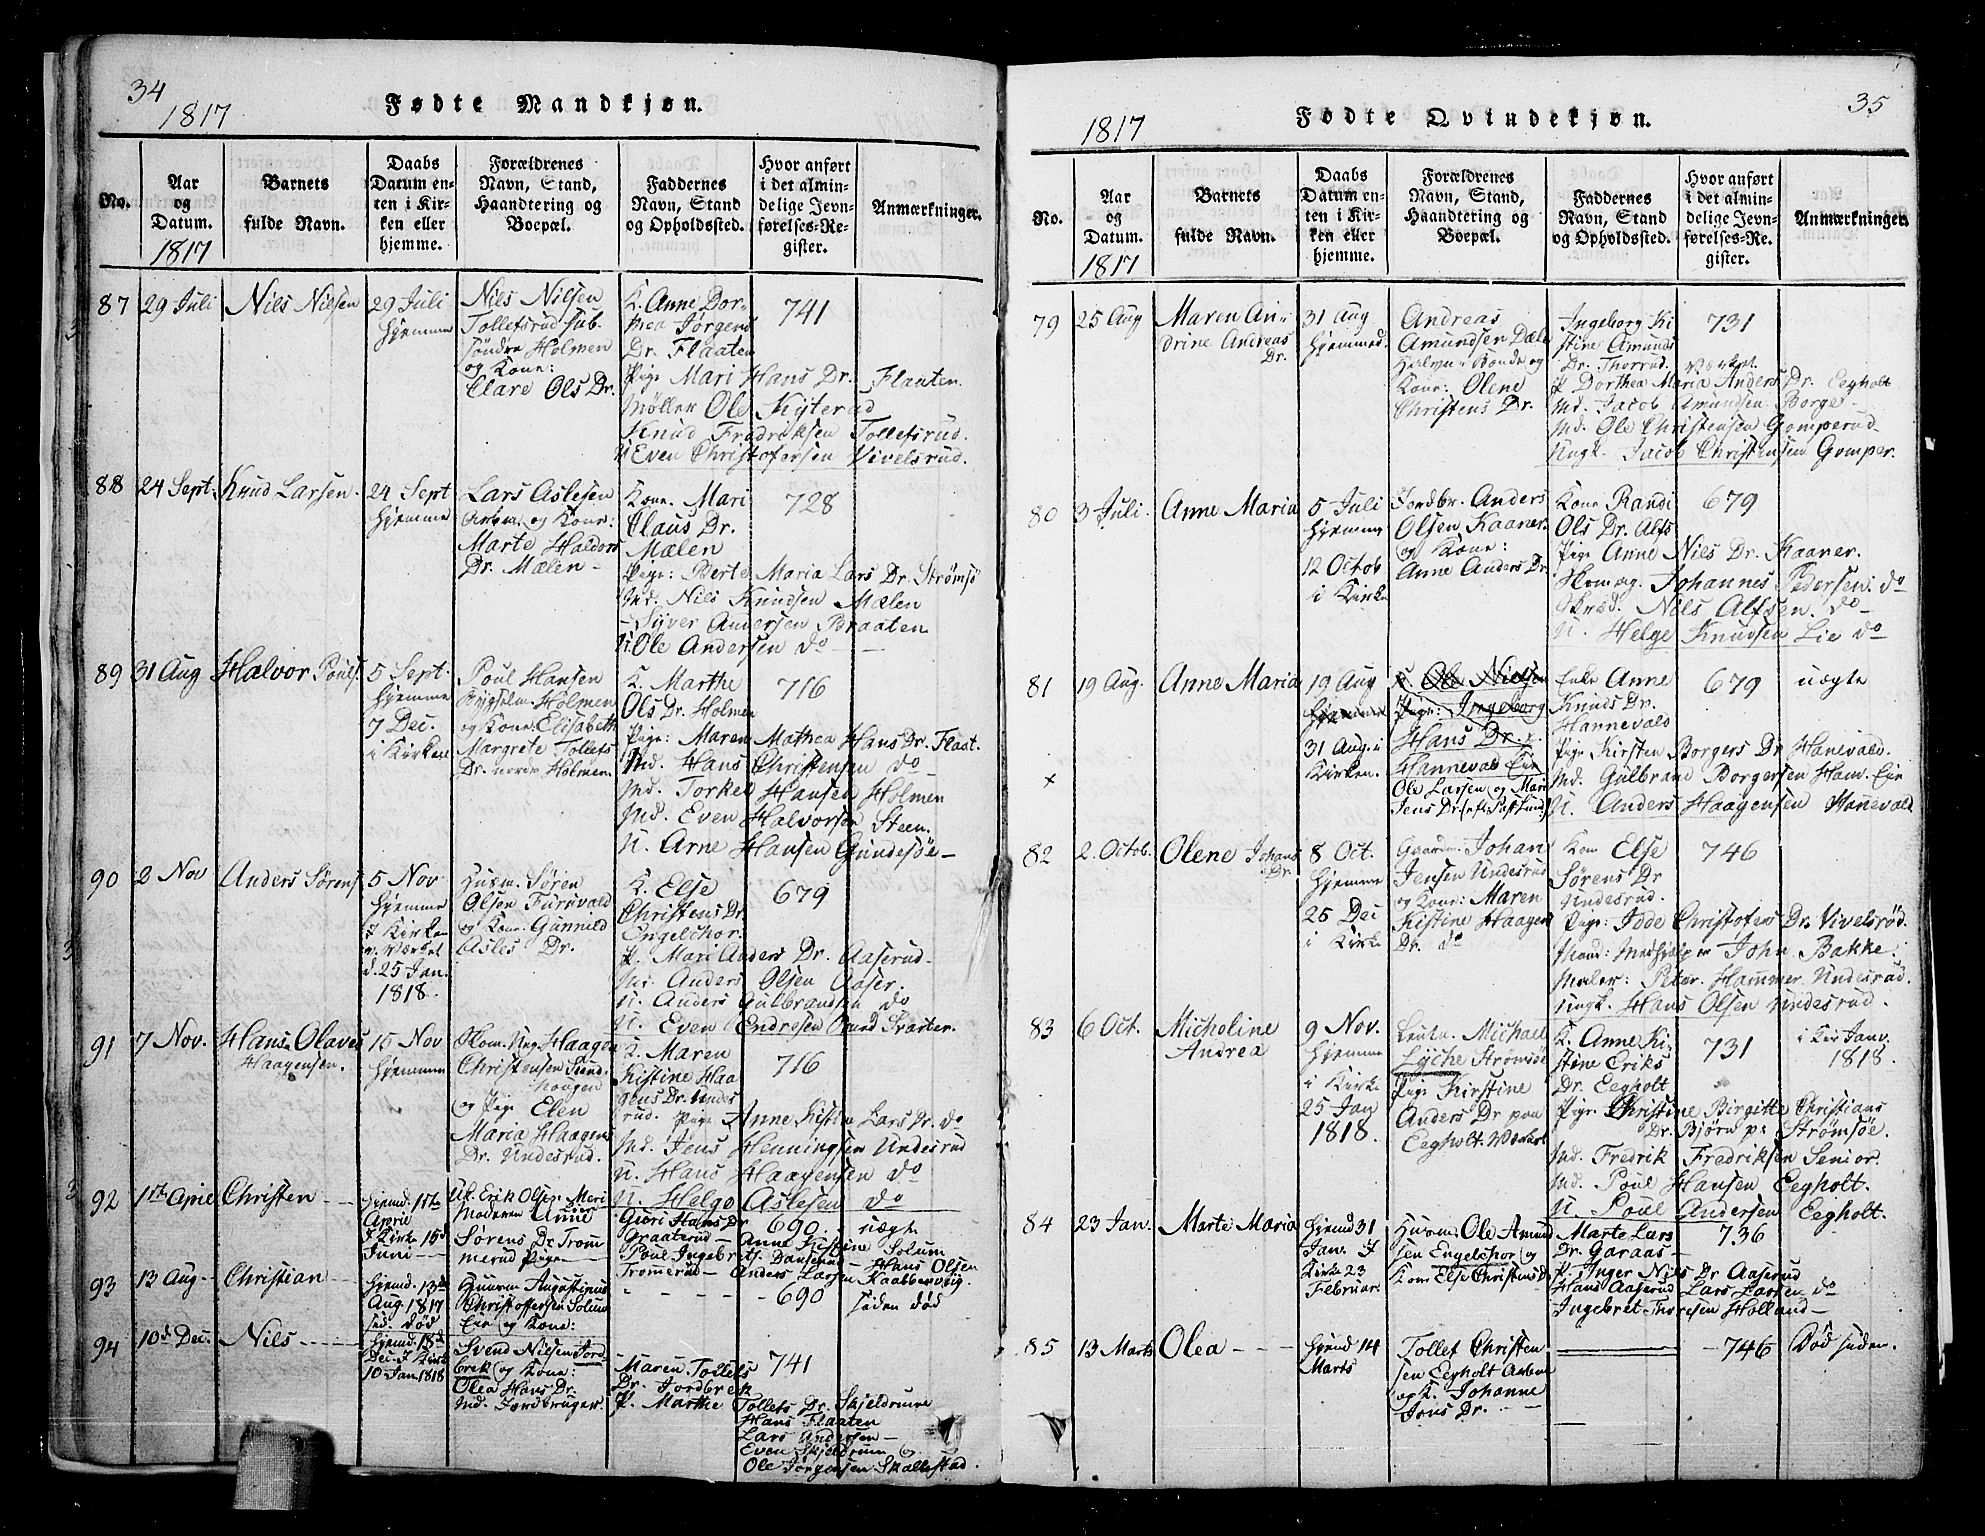 34
1817
Fødte Mandkjøn.
No.
Aar
og
Datum.
1817
Barnets
fulde Navn.
Daabs
Datum en-
ten i Kir-
ken eller
hjemme.
Forældrenes
Navn, Stand,
Haandtering og
Boepæl.
Faddernes
Navn, Stand
og Opholdssted.
Hvor anført
i det almin-
delige Jevn-
førelses-Re-
gister.
Anmærkninger.
87
29 Juli
Nils Nilsen
29 Juli
hjemme
Nils Nilsen
Tollefsrud
søndre Holmen
og Kone:
Clare Ols Dr.
K. Anne Dor-
thea Jørgens
Dr. Flaaten
Pige Mari Hans Dr. Flaaten.
Møller Ole Kyterud
Knud Fredriksen Tollefsrud.
U Even Christofersen Vivelsrud.
741
88
24 Sept.
Knud Larsen
24 Sept
hjemme
Lars Aslesen
og Kone:
Marte Haldors
Dr. Mælen -
Kone. Mari
Claus Dr.
Mælen
Pige: Berte Maria Lars Dr. Strømsø
Md. Nils Knudsen Mælen
- Syver Andersen Braaten
U. Ole Andersen do -
728
89
31 Aug
Halvor Pouls.
5 Sept.
hjemme
7 Dec.
i Kirken
Poul Hansen
Holmen
og Kone: Elisabeth
Margrete Tollefs
Dr. nordr Holmen.
K. Marthe
Ols Dr. Holmen
Pige: Maren Mathea Hans Dr. Flaat.
Md. Hans Christensen do
Md. Torkel Hansen Holmen
Md. Even Halvorsen Steen.
U. Arne Hansen Gundesøe -
716
90
2 Nov
Anders Sørens
5 Nov
hjemme
i Kirke
v. Værket
d. 25 Jan.
1818.
Husm. Søren
Olsen Furuvald
og Kone Gunnild
Asles Dr.
K. Else
Christens Dr.
Engelchor.
P. Mari Anders Dr. Aaserud-
Anders Olsen Aaser.
U. Anders Gulbrandsen do
U. Even Endresen
679
91
7 Nov.
Hans Olaves
Haagensen.
15 Nov
hjemme
Skom. Ung. Haagen
Christensen Sund-
haugen
og Pige Elen
Maria Haagens
Dr. Undesrud.
K. Maren
Kistine Haa
gens Dr. Undes
rud. Pige Anne Kistine Lars Dr. do
Md. Jens Henningsen Undesrud
U. Hans Haagensen do
U. Helge Aslesen do
716
92
1ste April
Christen
hjemd. 1ste
April
I Kirke 15d
Juni -
Erik Olsen
Moderen Anne
Sørens Dr Trom
merud Pige -
Guri Hans Dr
Graaterud -
Poul Ingebretz.
Tromerud - Anders Larsen Kaabbervig.
690.
uægt
Anne Kistine Solum
Hans Olsen
93
13 Aug -
Christian
hjemd. 13de
Aug. 1817
sid. død
Huusm Augustinus
Christoffersen Solum
Eie og Kone:
690
siden død
94
10d. Dec.
Nils
hjemd. 18d
Dec. I Kirk
10 Jan. 1818
Svend Nilsen Jord-
brek og Kone:
Olea Hans Dr.
Md. Jordbruger
Maren Tollefs
Dr. Jordbrek
P. Marthe Tollefs Dr. Skjeldrum
Hans Flaaten
Lars Andersen -
Even Skjeldrum og
Ole Jørgensen Skallestad.
741
35
1817
Fødte Qvindekjøn.
No.
Aar
og
Datum.
1817
Barnets
fulde Navn.
Daabs
Datum en-
ten i Kir-
ken eller
hjemme.
Forældrenes
Navn, Stand,
Haandtering og
Boepæl.
Faddernes
Navn, Stand
og Opholdssted.
Hvor anført
i det almin-
delige Jevn-
førelses-Re-
gister.
Anmærkninger.
79
25 Aug
Maren An-
drine Andreas
Dr.
31 Aug
hjemmed.
Andreas
Amundsen Dæle
Bonde og
Kone: Olene
Christens Dr.
Ingeborg Ki
stine Amunds
Dr. Thorrud.
P Dorthea Maria Anders Dr. Eegholt
Md. Jacob Amundsen Borge -
Md. Ole Christensen Gomperud-
Ungk. Jacob Christensen Gomper.
731
80
3 Juli.
Anne Maria
5 Juli
hjemme
12 Octob
i Kirke
Jordbr. Anders
Olsen Kaaner.
og Kone:
Anne Anders Dr
Kone Randi
Ols Dr. Alfs
Pige Anne Nils Dr. Kaaner.
Skomag. Johannes Pedersen. do
Skræd. Nils Alfsen. do-
U. Helge Knudsen Lie do
679
81
19 Aug.
Anne Maria
19 Aug
hjemme
31 Aug. i
Kirken.
x
Ole Nielsen
Pige: Ingeborg
Hans Dr.
Hannevald Eie
Ole Larsen og Mari
Jens Dr.
Enke Anne
Knuds Dr.
Hannevald
Pige Kirsten Borgers Dr Hanevald.
Md. Gulbrand Borgersen Han. Eie
U. Anders Haagensen Hanevald
679
uægte
82
2. Octob.
Olene Johans
Dr.
8 Oct.
hjemme
25 Dec
i Kirke
Gaardm. Johan
Jensen Undesrud
og Kone: Maren
Kistine Haagens
Dr. do
Kone Else
Sørens Dr
Undesrud.
Pige: Idde Christofers Dr. Vivelsrød.
Mand: Medhjælper John Bakke.
Maler: Peter Hammer Undesrud.
Ungk. Hans Olsen Undesrud.
746
83
6 Oct.
Micholine
Andrea
9 Nov.
hjemme
i Kirke
25 Jan
1818.
Leutn. Michael
Lyche Strømsøe
Pige Kirstine
Anders Dr paa
Eegholt. Værket
K. Anne Ki-
stine Eriks
Dr. Eegholt
Pige. Christine Birgitte Christians
Dr. Bjørn pr Strømsøe.
Md. Fredrik Fredriksen Senior.
Md. Poul Hansen Eegholt.
U. Poul Andersen Eegholt.
731
i Kir Janv.
1818.
84
23 Jan.
Marte Maria
hjemd 31
Jan. I
Kirke 23
Februar.
Huusm: Ole Amund
sen Engelchor og
Kone Else Christens D.
Marte Lars
Dr. Garaas -
P. Inger Nils Dr Aaserud
Hans Aaserud Lars Larsen do
Ingebret Thoresen Holland -
736
85
13 Marts
Olea
hjemd 14
Marts
Tollef Christen
sen Eegholt Arbm
og K. Johanne
Jons Dr. -
746
Død siden.